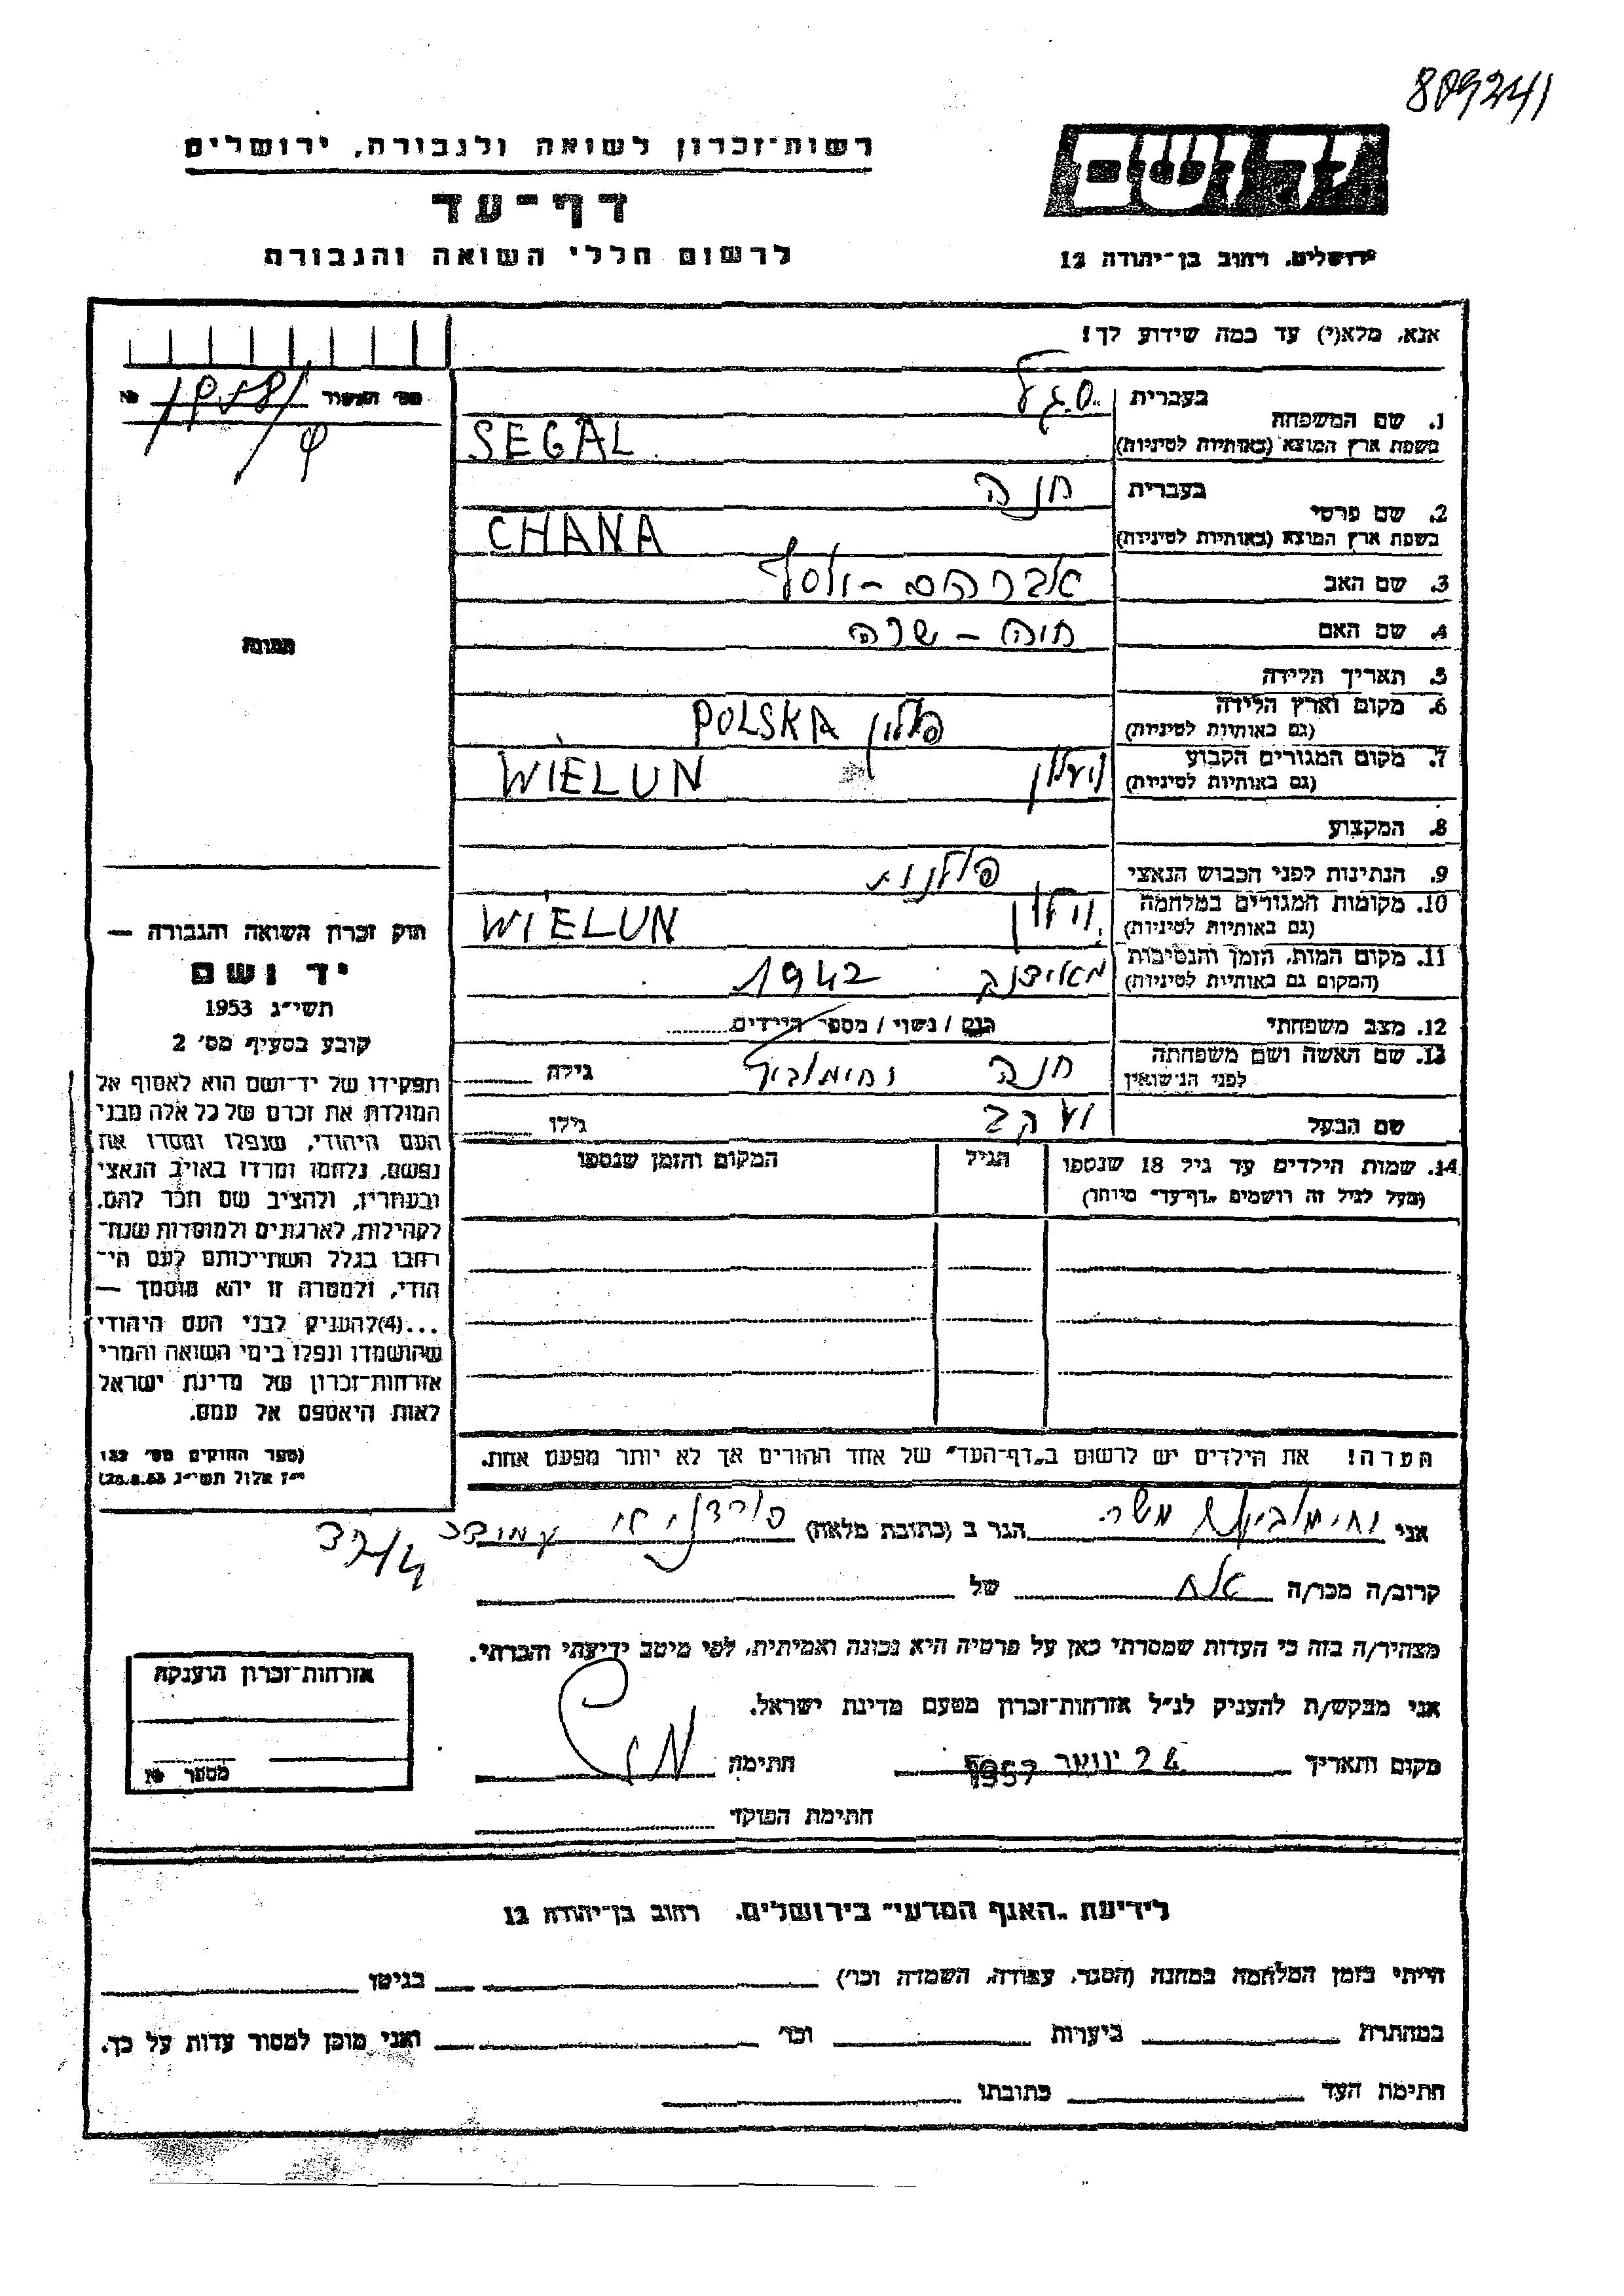 809241
רשות-זכרון לשואה ולגבורה, ירושלים
דף-עד
לרשום חללי השואה והגבורה
יד ושם
ירושלים, רחוב בן-יהודה 12
אנא, מלא(י) עד כמה שידוע לך!
מס' האשור №
1. שם המשפחה
בעברית סגל
בשפת ארץ המוצא (באותיות לטיניות) SEGAL
2. שם פרטי
בעברית חנה
בשפת ארץ המוצא (באותיות לטיניות) CHANA
3. שם האב אברהם - יוסף
4. שם האם חיה - שרה
5. תאריך הלידה
6. מקום וארץ הלידה פולין POLSKA
(גם באותיות לטיניות)
7. מקום המגורים הקבוע WIELUN
(גם באותיות לטיניות)
8. המקצוע
9. הנתינות לפני הכבוש הנאצי פולנית
10. מקומות המגורים במלחמה וילון WIELUN
(גם באותיות לטיניות)
11. מקום המות, הזמן והנסיבות מאידנק 1942
(המקום גם באותיות לטיניות)
12. מצב משפחתי רווק / נשוי / מספר הילדים
13. שם האשה ושם משפחתה חנה גילה
לפני הנישואין
שם הבעל יעקב גילו
14. שמות הילדים עד גיל 18 שנספו הגיל המקום והזמן שנספו
(מעל לגיל זה רושמים "דף-עד" מיוחד)
תמונה
חוק זכרון השואה והגבורה —
יד ושם
תשי"ג 1953
קובע בסעיף מס' 2
תפקידו של יד-ושם הוא לאסוף אל
המולדת את זכרם של כל אלה מבני
העם היהודי, שנפלו ומסרו את
נפשם, נלחמו ומרדו באויב הנאצי
ובעוזריו, ולהציב שם וזכר להם,
לקהילות, לארגונים ולמוסדות שנח-
רבו בגלל השתייכותם לעם הי-
הודי, ולמטרה זו יהא מוסמך —
...(4) להעניק לבני העם היהודי
שהושמדו ונפלו בימי השואה והמרי
אזרחות-זכרון של מדינת ישראל
לאות היאספם אל עמם.
(ספר החוקים מס' 132
י"ז אלול תשי"ג 28.8.53)
הערה! את הילדים יש לרשום ב"דף-העד" של אחד ההורים אך לא יותר מפעם אחת.
אני משה הגר ב (כתובת מלאה)
קרוב/ה מכר/ה אח של
מצהיר/ה בזה כי העדות שמסרתי כאן על פרטיה היא נכונה ואמיתית, לפי מיטב ידיעתי והכרתי.
אני מבקש/ת להעניק לנ"ל אזרחות-זכרון מטעם מדינת ישראל.
מקום ותאריך 24 ינואר 1957 חתימה
חתימת הפוקד
אזרחות-זכרון הוענקה
מספר №
לידיעת "האגף המדעי" בירושלים, רחוב בן-יהודה 12
הייתי בזמן המלחמה במחנה (הסגר, עבודה, השמדה וכו') בגיטו
במחתרת ביערות וכו' ואני מוכן למסור עדות על כך.
חתימת העד כתובתו